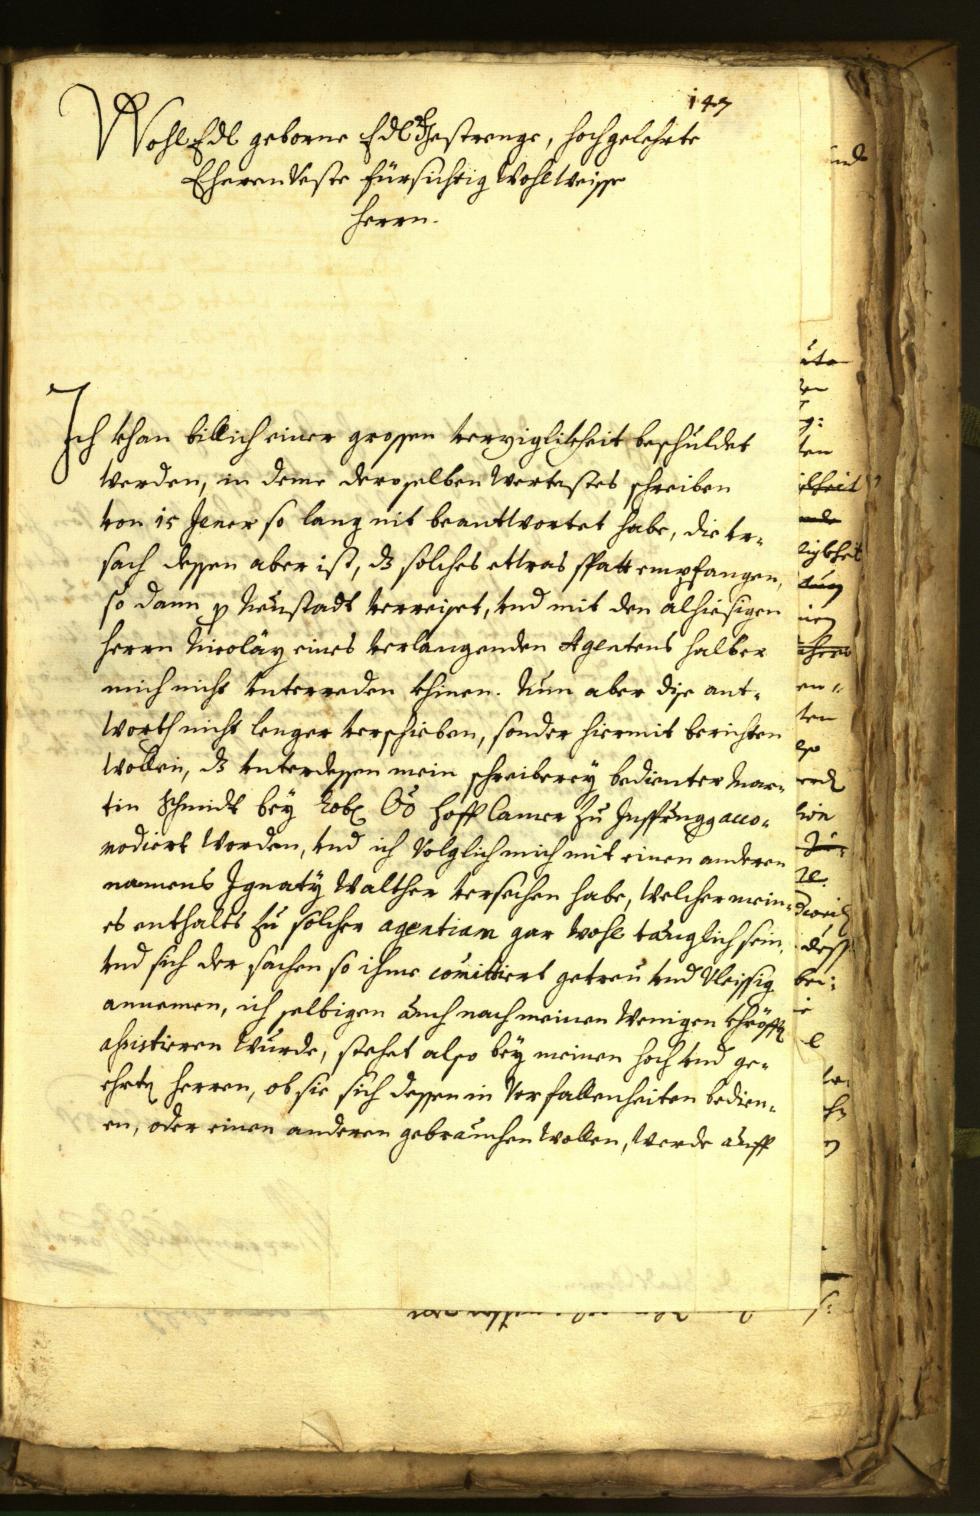 147
WohlEdl geborne Edl Gestrenge, hochgelehrte
Ehrenveste fürsichtig Wohl Weisse
Herrn.
Ich khan billich einer grossen verviglikheit beschuldet
werden, in deme deroselben Wertestes schreiben
von 15 Jener so lang nit beantwortet habe, die vr-
sach dessen aber ist, dz solches etwas spatt empfangen,
so dann Neustadt verreiset, vnd mit den alhiesigen
Herrn Nicoläy eines verlangenden Agentens halber
mich nicht vnterreden khinen. Nun aber dise ant-
worth nicht lenger verschieben, sonder hiermit berichten
wollen, dz vnterdessen mein schreiberey bedienter Mar-
tin Schmidt bey Löb. OÖ Hoff Camer zu Insprugg acco-
modiert worden, vnd ich volglich mich mit einen anderen
namens Ignatÿ Walther versechen habe, welcher mein-
es enthalts zu solcher agentiam gar wohl tauglich sein,
vnd sich der sachen so ihme comittiert getreu vnd vleissig
annemen, ich selbigen auch nach meinen wenigen khröfften
assistieren wurde, stehet also bey meinen hoch vnd ge-
ehrten Herren, ob sie sich dessen in vorfallenheiten bedien-
en, oder einen anderen gebrauchen wollen, werde auff